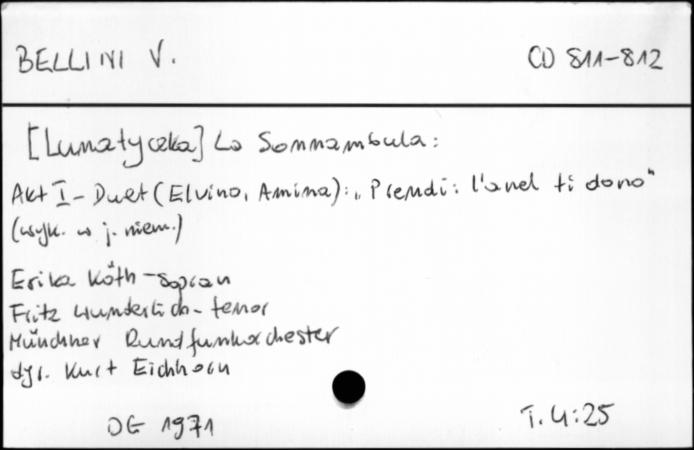 BELLINI V.
CD 811-812
[Lunatyczka] La Sonnambula:
Akt I - Duet (Elvino, Amina): „Prendi: l'anel ti dono"
(wyk. w j. niem.)
Erika Köth - sopran
Fritz Wunderlich - tenor
Münchner Rundfunkorchester
dyr. Kurt Eichhorn
OG 1971
T. 4:25